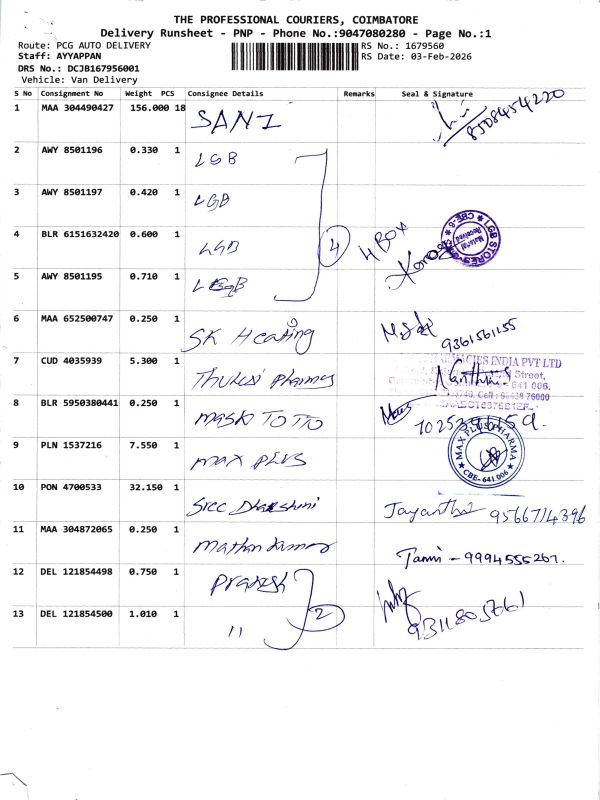 THE PROFESSIONAL COURIERS, COIMBATORE
Delivery Runsheet - PNP - Phone No.:9047080280 - Page No.:1
Route: PCG AUTO DELIVERY RS No.: 1679560
Staff: AYYAPPAN RS Date: 03-Feb-2026
DRS No.: DCJB167956001
Vehicle: Van Delivery
S No Consignment No Weight PCS Consignee Details Remarks Seal & Signature
1 MAA 304490427 156.000 18 SANI
2 AWY 8501196 0.330 1 LGB
3 AWY 8501197 0.420 1 LGB
4 BLR 6151632420 0.600 1 LGB 4 4 BOX
LGB STORES CBE-6 Material Received
5 AWY 8501195 0.710 1 LGB
6 MAA 652500747 0.250 1 SK Heating 9361561155
7 CUD 4035939 5.300 1 Thulasi Pharmacy
PHARMACIES INDIA PVT LTD
Street,
641 006.
8 BLR 5950380441 0.250 1 MASKI TOTTO
9 PLN 1537216 7.550 1 MAX PLUS
MAX PLUS PHARMA CBE-641 006
10 PON 4700533 32.150 1 Sree Dharshini Jayantha 9566714396
11 MAA 304872065 0.250 1 Mathan Kumar - 9994555267.
12 DEL 121854498 0.750 1 Prakash
13 DEL 121854500 1.010 1 11 2 9311805761